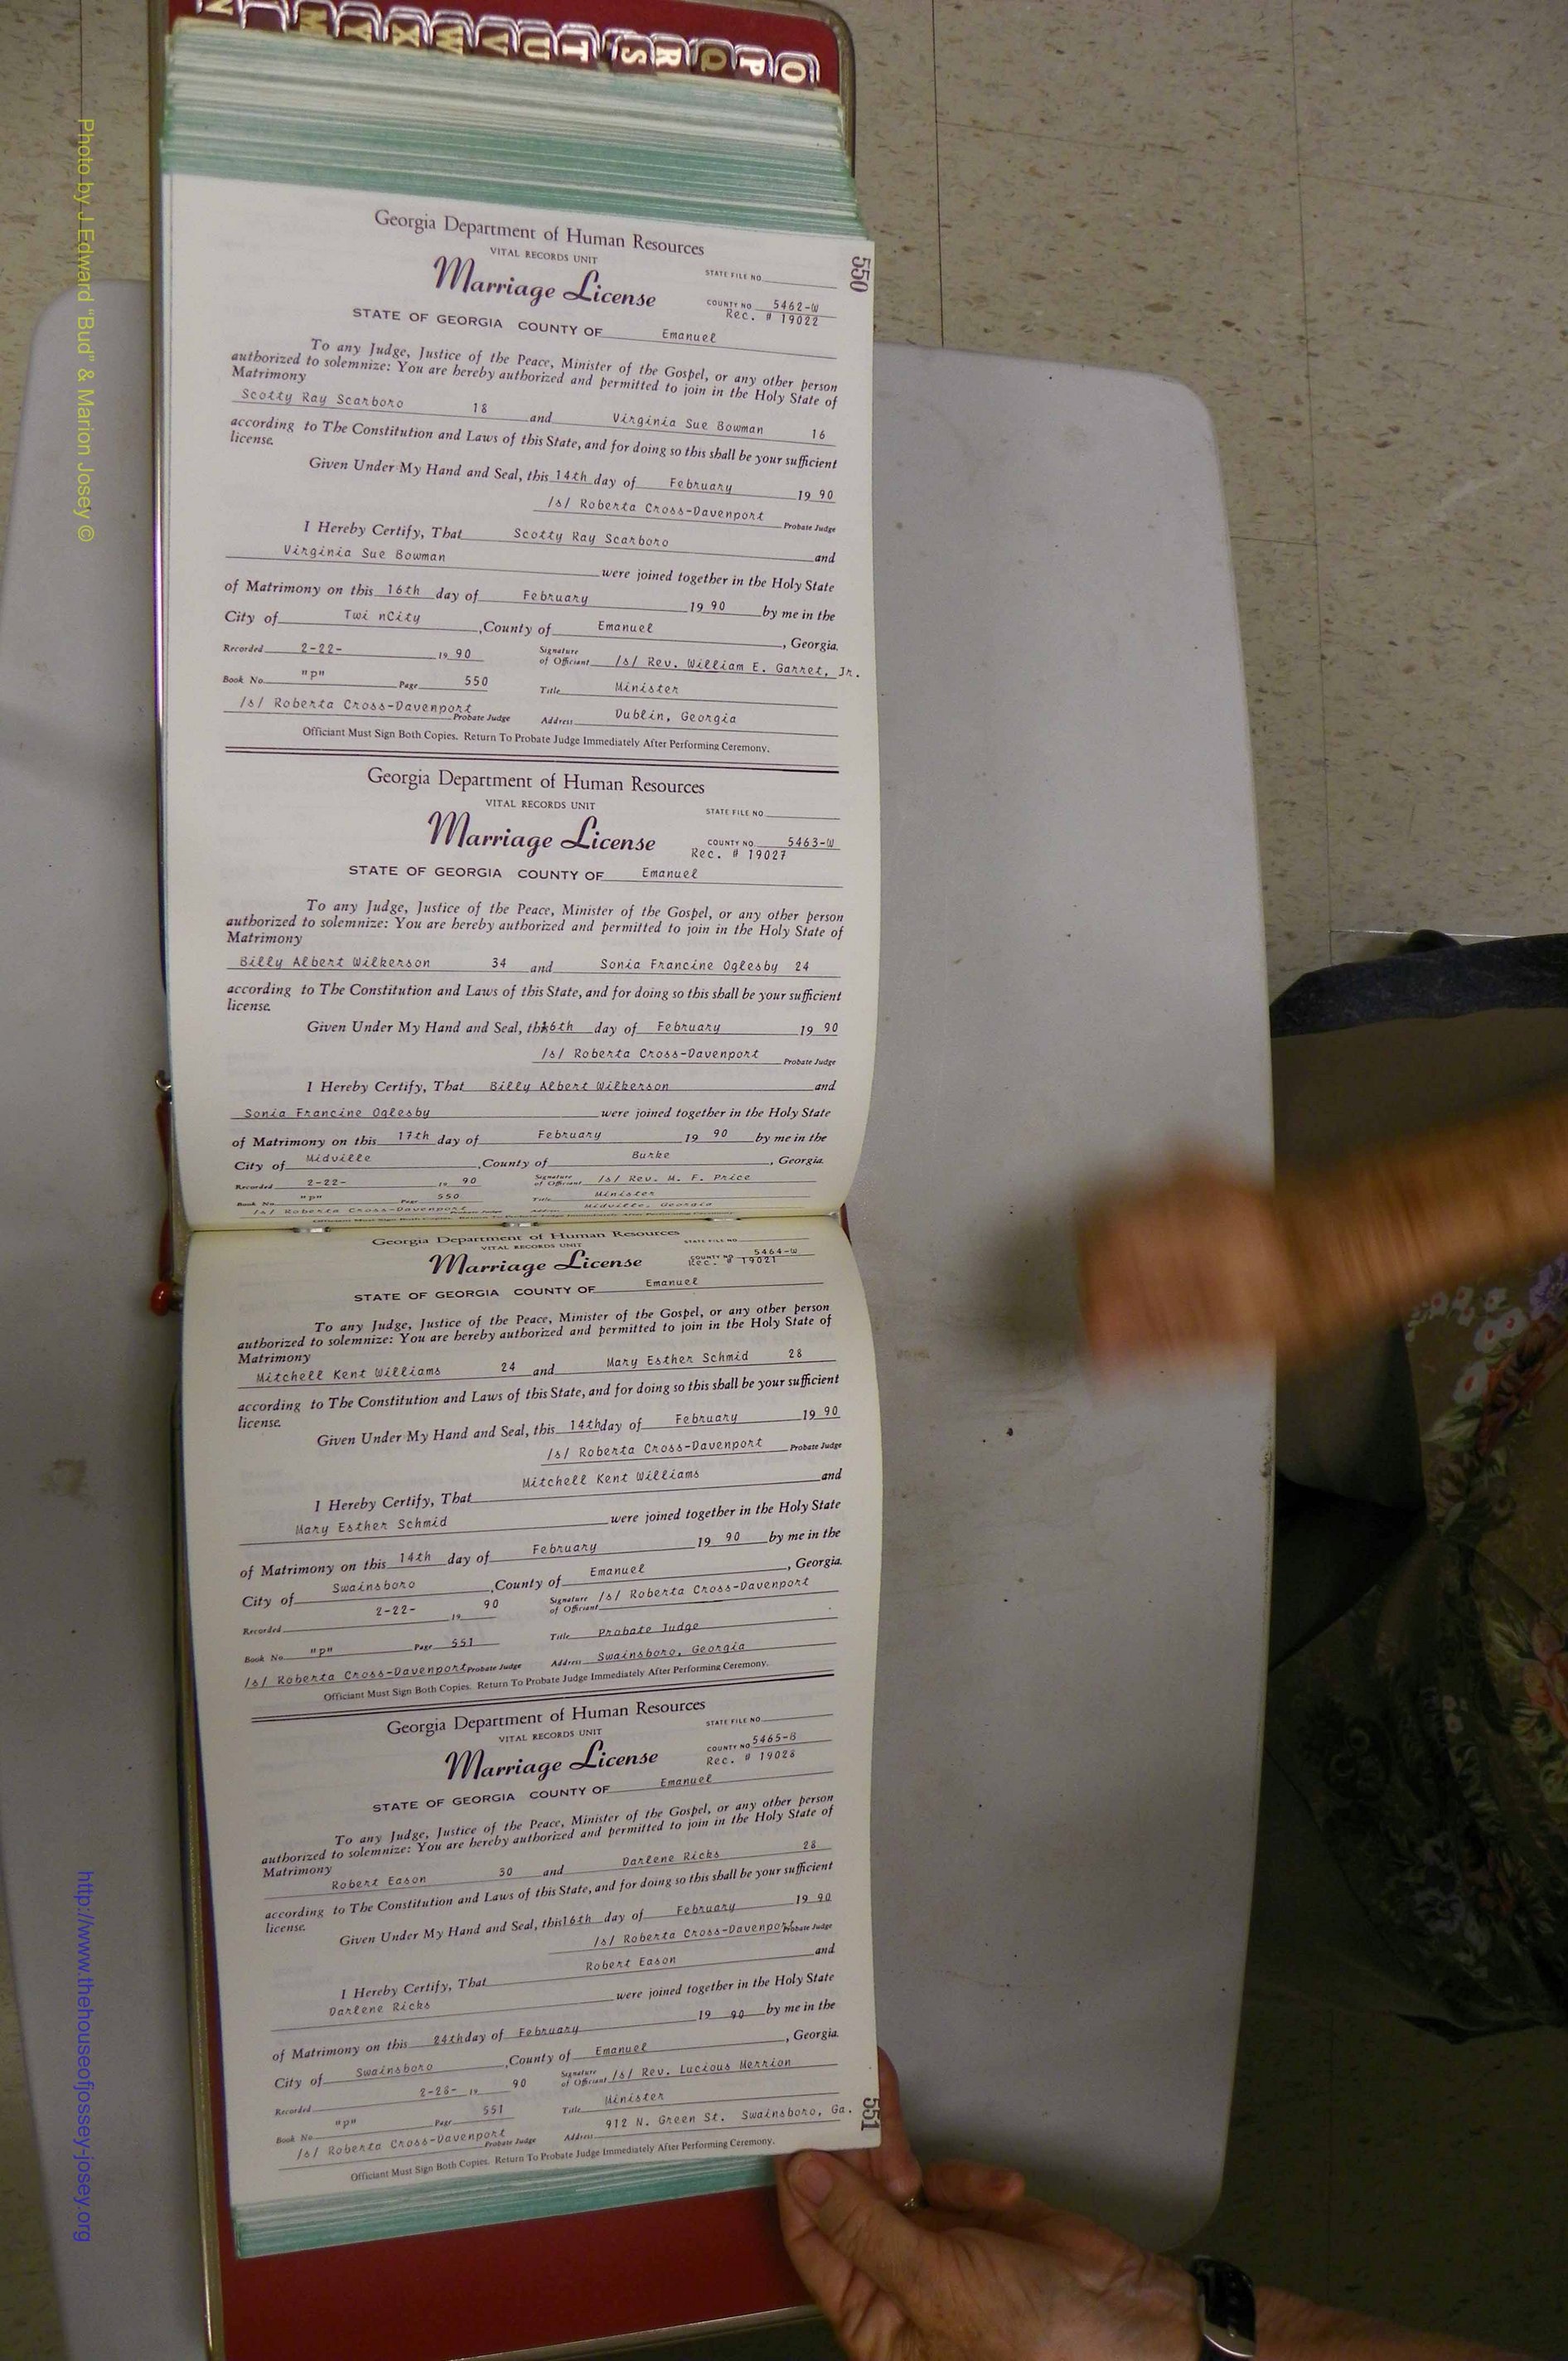 N M Y X W V U T S R Q P O
Photo by J Edward "Bud" & Marion Josey ©
550
Georgia Department of Human Resources
VITAL RECORDS UNIT
STATE FILE NO
Marriage License
COUNTY NO 5462-W
Rec. # 19022
STATE OF GEORGIA COUNTY OF Emanuel
To any Judge, Justice of the Peace, Minister of the Gospel, or any other person
authorized to solemnize: You are hereby authorized and permitted to join in the Holy State of
Matrimony
Scotty Ray Scarboro 18 and Virginia Sue Bowman 16
according to The Constitution and Laws of this State, and for doing so this shall be your sufficient
license.
Given Under My Hand and Seal, this 14th day of February 19 90
/s/ Roberta Cross-Davenport Probate Judge
I Hereby Certify, That Scotty Ray Scarboro and
Virginia Sue Bowman were joined together in the Holy State
of Matrimony on this 16th day of February 19 90 by me in the
City of Twi nCity, County of Emanuel, Georgia.
Recorded 2-22- 19 90 Signature of Officiant /s/ Rev. William E. Garret, Jr.
Book No. "p" Page 550 Title Minister
/s/ Roberta Cross-Davenport Probate Judge Address Dublin, Georgia
Officiant Must Sign Both Copies. Return To Probate Judge Immediately After Performing Ceremony.
Georgia Department of Human Resources
VITAL RECORDS UNIT
STATE FILE NO
Marriage License
COUNTY NO 5463-W
Rec. # 19027
STATE OF GEORGIA COUNTY OF Emanuel
To any Judge, Justice of the Peace, Minister of the Gospel, or any other person
authorized to solemnize: You are hereby authorized and permitted to join in the Holy State of
Matrimony
Billy Albert Wilkerson 34 and Sonia Francine Oglesby 24
according to The Constitution and Laws of this State, and for doing so this shall be your sufficient
license.
Given Under My Hand and Seal, this 16th day of February 19 90
/s/ Roberta Cross-Davenport Probate Judge
I Hereby Certify, That Billy Albert Wilkerson and
Sonia Francine Oglesby were joined together in the Holy State
of Matrimony on this 17th day of February 19 90 by me in the
City of Midville, County of Burke, Georgia.
Recorded 2-22- 19 90 Signature of Officiant /s/ Rev. M. F. Price
Book No. "p" Page 550 Title Minister
/s/ Roberta Cross-Davenport Probate Judge Address Midville, Georgia
Officiant Must Sign Both Copies. Return To Probate Judge Immediately After Performing Ceremony.
Georgia Department of Human Resources
VITAL RECORDS UNIT
STATE FILE NO
Marriage License
COUNTY NO 5464-W
Rec. # 19021
STATE OF GEORGIA COUNTY OF Emanuel
To any Judge, Justice of the Peace, Minister of the Gospel, or any other person
authorized to solemnize: You are hereby authorized and permitted to join in the Holy State of
Matrimony
Mitchell Kent Williams 24 and Mary Esther Schmid 28
according to The Constitution and Laws of this State, and for doing so this shall be your sufficient
license.
Given Under My Hand and Seal, this 14th day of February 19 90
/s/ Roberta Cross-Davenport Probate Judge
I Hereby Certify, That Mitchell Kent Williams and
Mary Esther Schmid were joined together in the Holy State
of Matrimony on this 14th day of February 19 90 by me in the
City of Swainsboro, County of Emanuel, Georgia.
Recorded 2-22- 19 90 Signature of Officiant /s/ Roberta Cross-Davenport
Book No. "p" Page 551 Title Probate Judge
/s/ Roberta Cross-Davenport Probate Judge Address Swainsboro, Georgia
Officiant Must Sign Both Copies. Return To Probate Judge Immediately After Performing Ceremony.
Georgia Department of Human Resources
VITAL RECORDS UNIT
STATE FILE NO
Marriage License
COUNTY NO 5465-B
Rec. # 19028
STATE OF GEORGIA COUNTY OF Emanuel
To any Judge, Justice of the Peace, Minister of the Gospel, or any other person
authorized to solemnize: You are hereby authorized and permitted to join in the Holy State of
Matrimony
Robert Eason 30 and Darlene Ricks 28
according to The Constitution and Laws of this State, and for doing so this shall be your sufficient
license.
Given Under My Hand and Seal, this 16th day of February 19 90
/s/ Roberta Cross-Davenport Probate Judge
I Hereby Certify, That Robert Eason and
Darlene Ricks were joined together in the Holy State
of Matrimony on this 24th day of February 19 90 by me in the
City of Swainsboro, County of Emanuel, Georgia.
Recorded 2-28- 19 90 Signature of Officiant /s/ Rev. Lucious Merrion
Book No. "p" Page 551 Title Minister
/s/ Roberta Cross-Davenport Probate Judge Address 912 N. Green St. Swainsboro, Ga.
Officiant Must Sign Both Copies. Return To Probate Judge Immediately After Performing Ceremony.
551
http://www.thehouseofjossey-josey.org